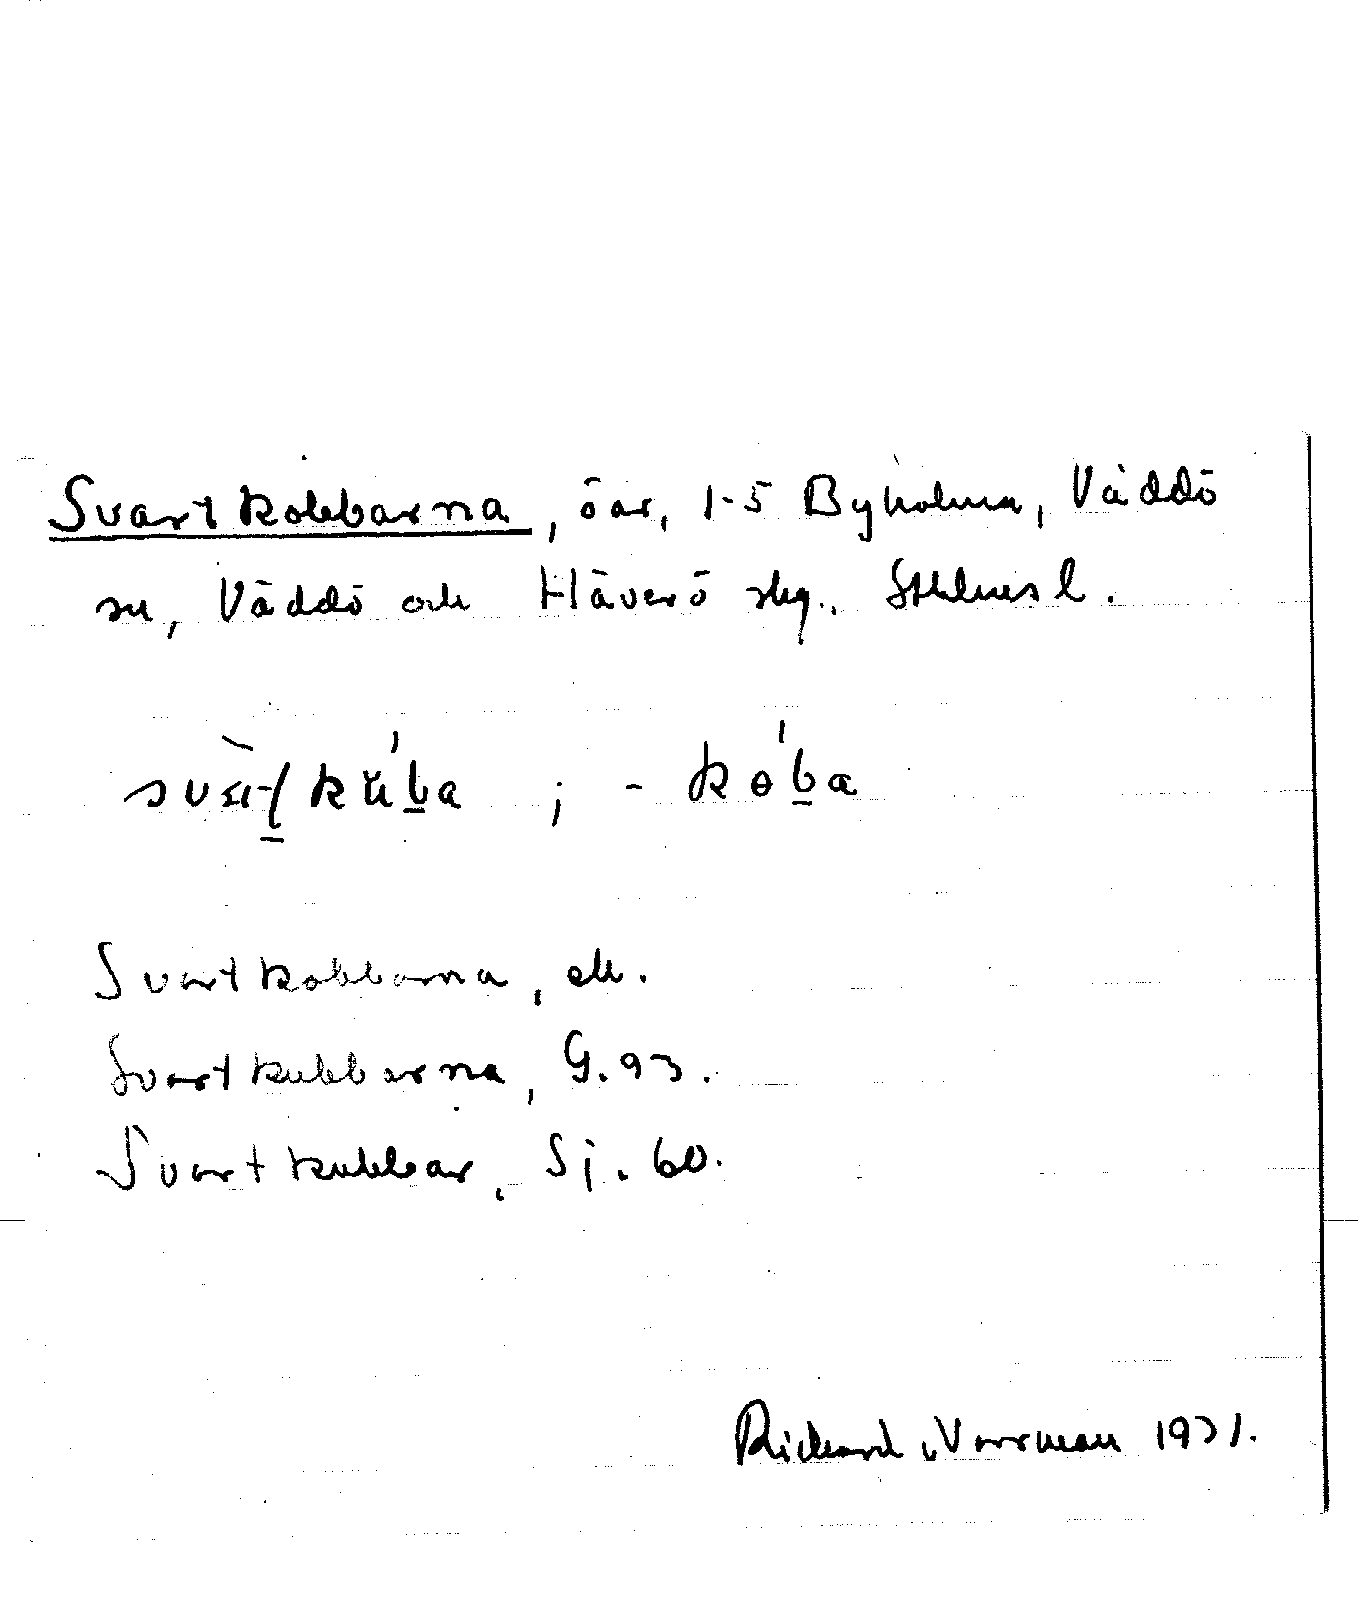 Svartkobbarna, öar, 1-5 Byholma, Väddö
sn, Väddö och Häverö skg., Sthlms l.
; - kөba
Svartkobbarna, ek.
Svartkubbarna, G. 93.
Svartkubbar, Sj. 60.
Rickard Norrman 1931.